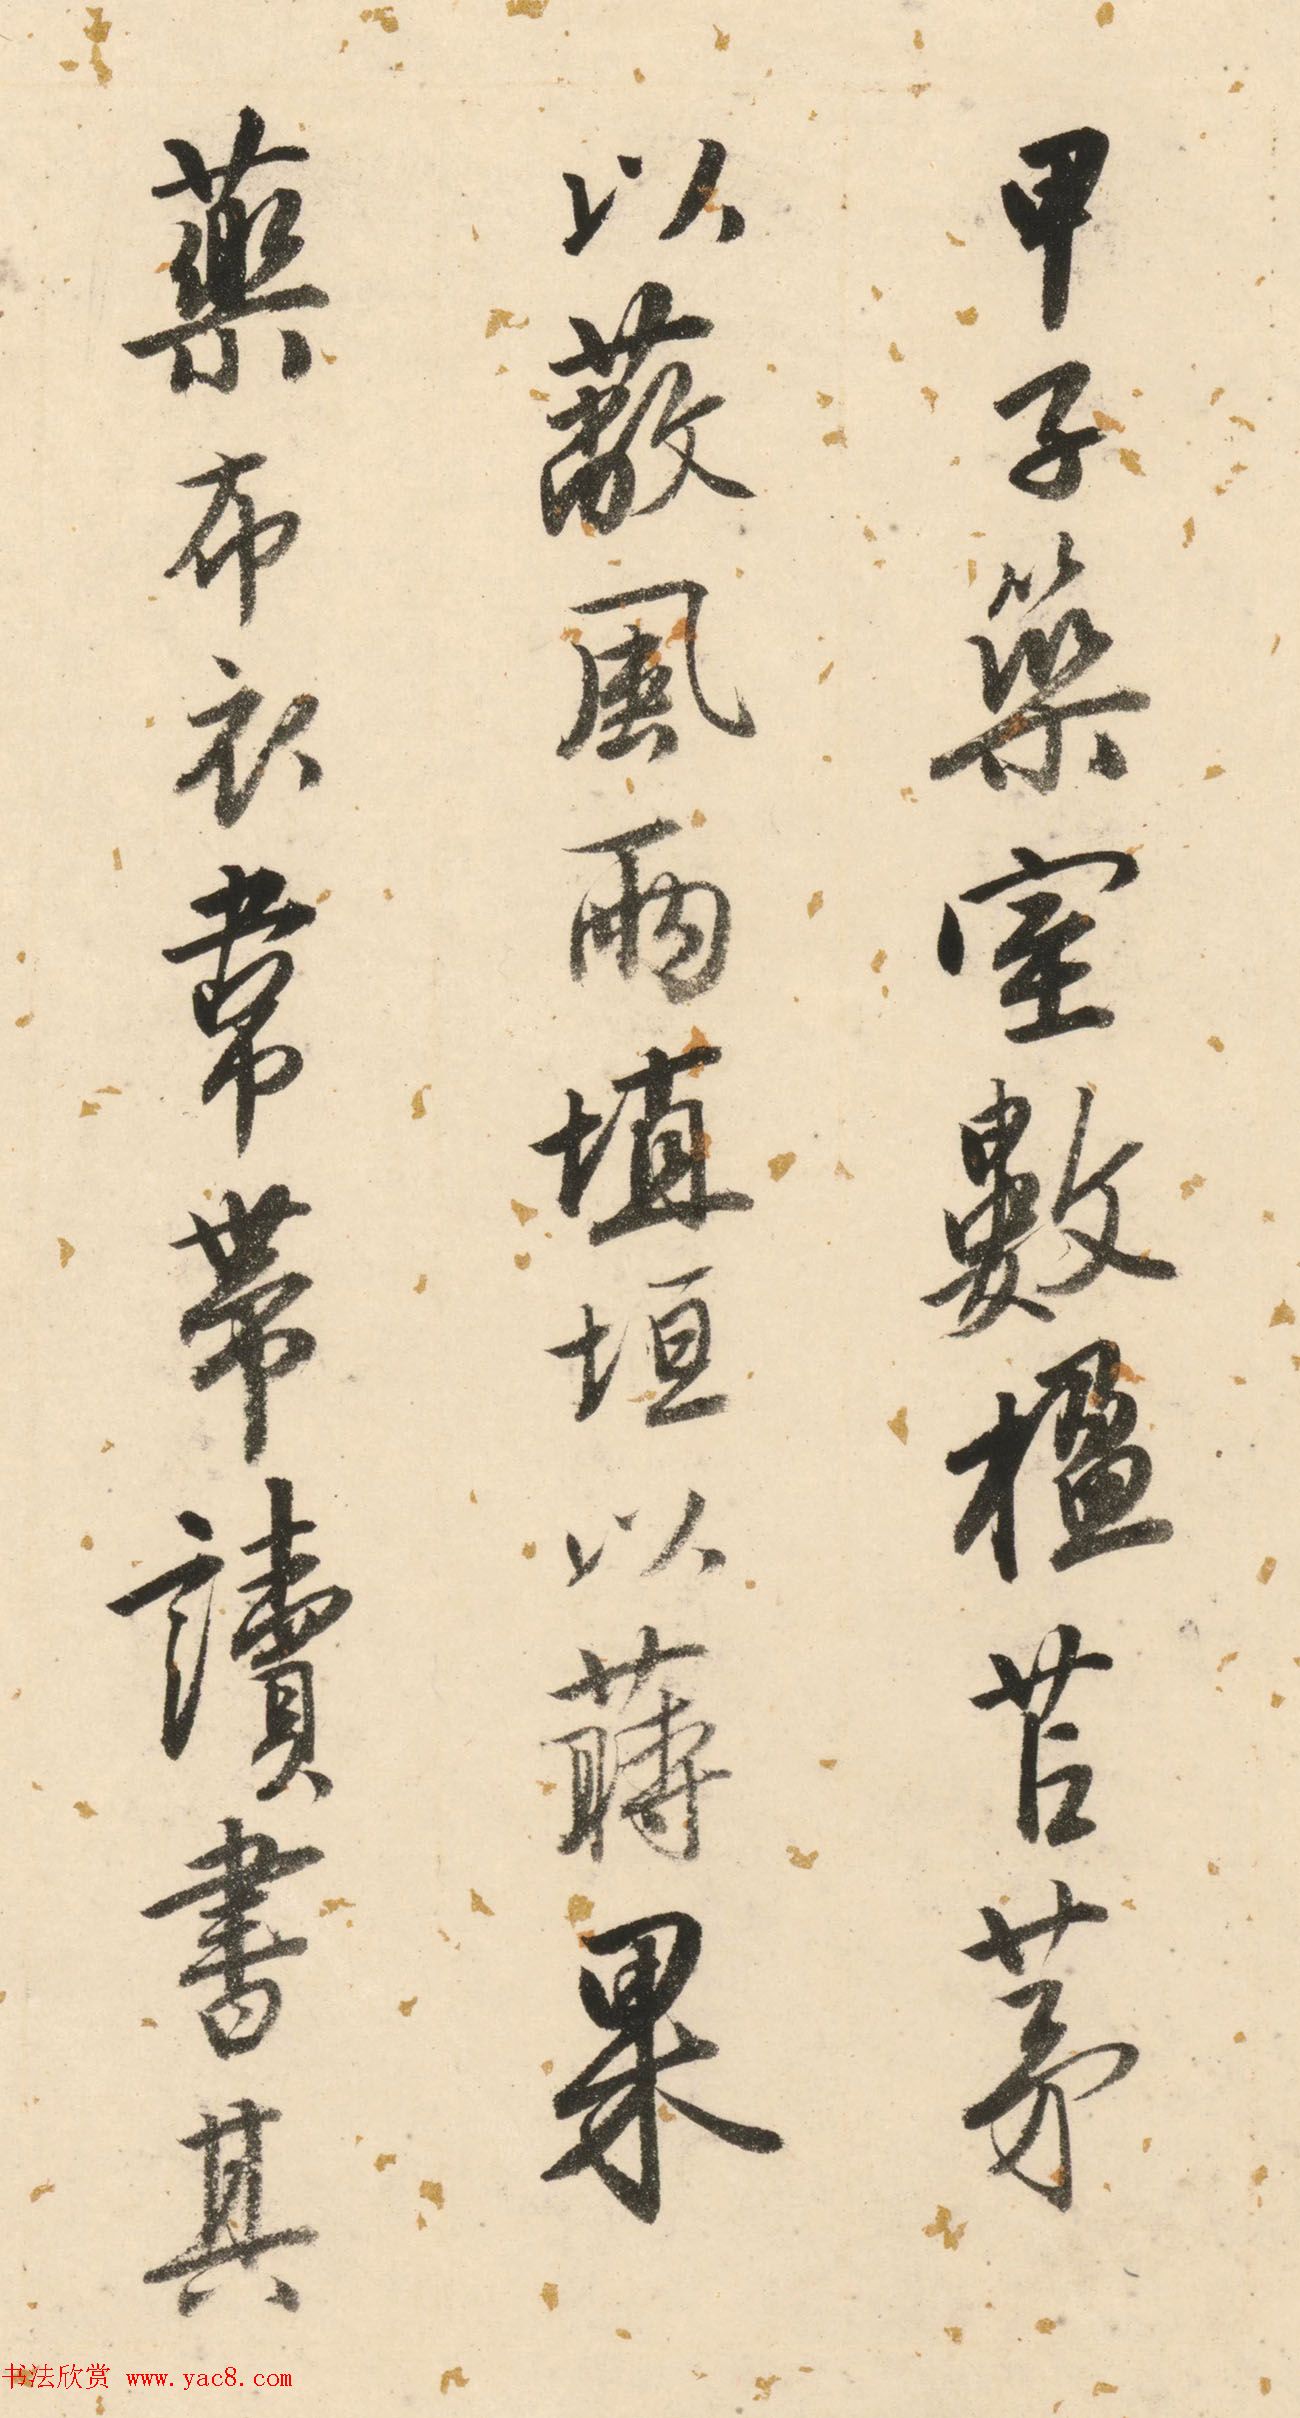 甲子築室數楹苫茅
以蔽風雨埴垣以蒔果
藥布衣常帶讀書其
书法欣赏 www.yac8.com